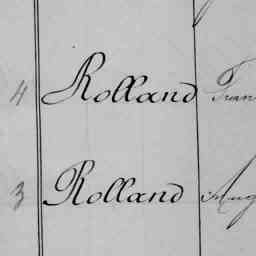 4 Rolland Fran
3 Rolland Aug